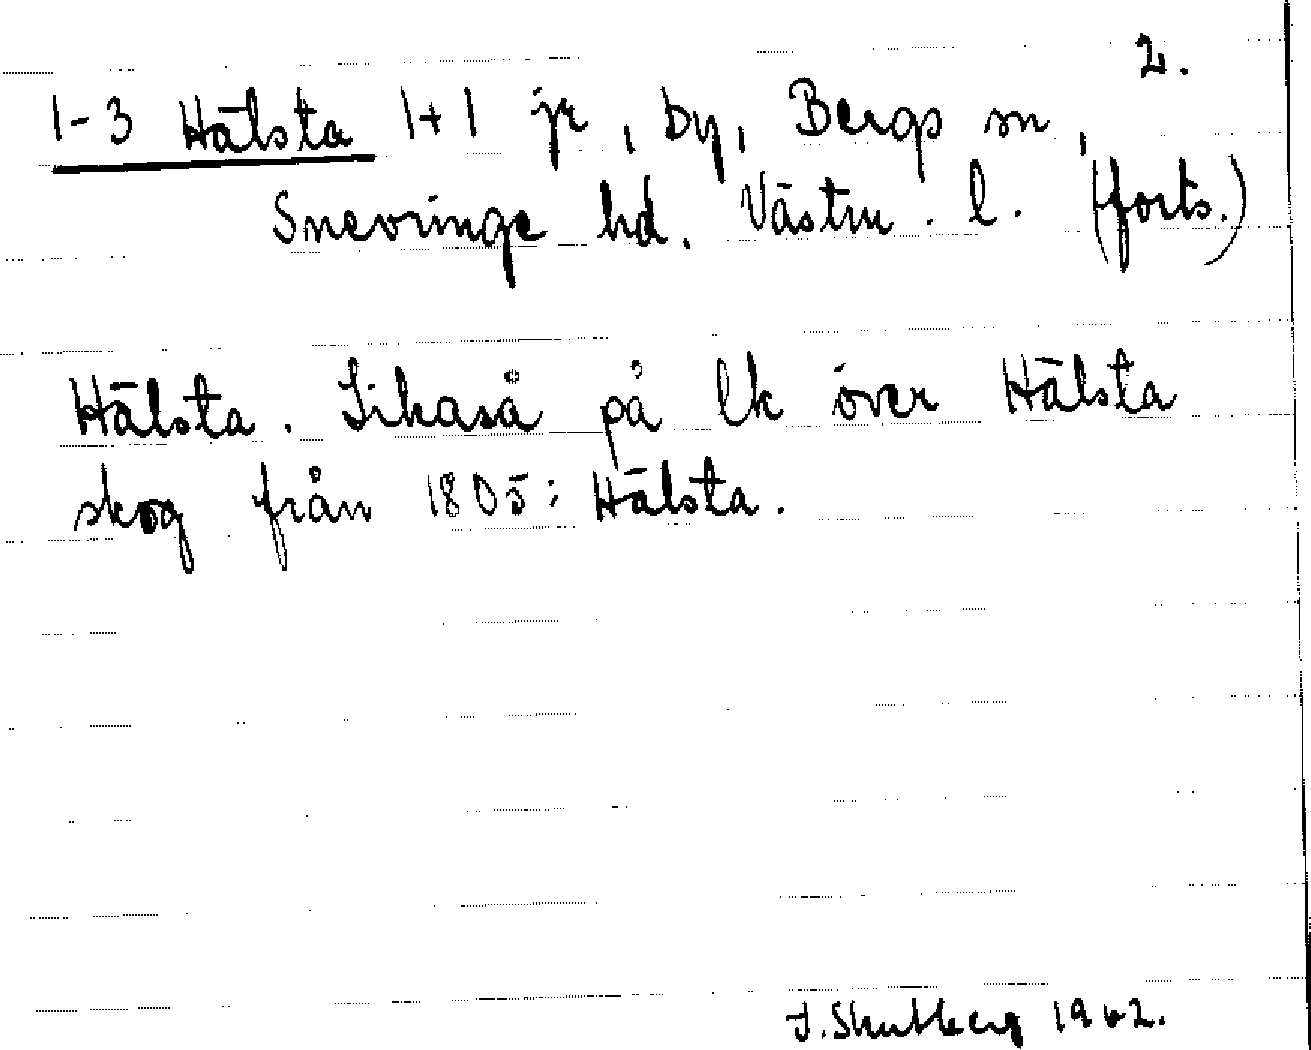 2.
1-3 Hälsta 1+1 je, by, Bergs sn,
Snevringe hd. Västm. l. (forts.)
Hälsta. Likaså på lk över Hälsta
skog från 1805: Hälsta.
1942.